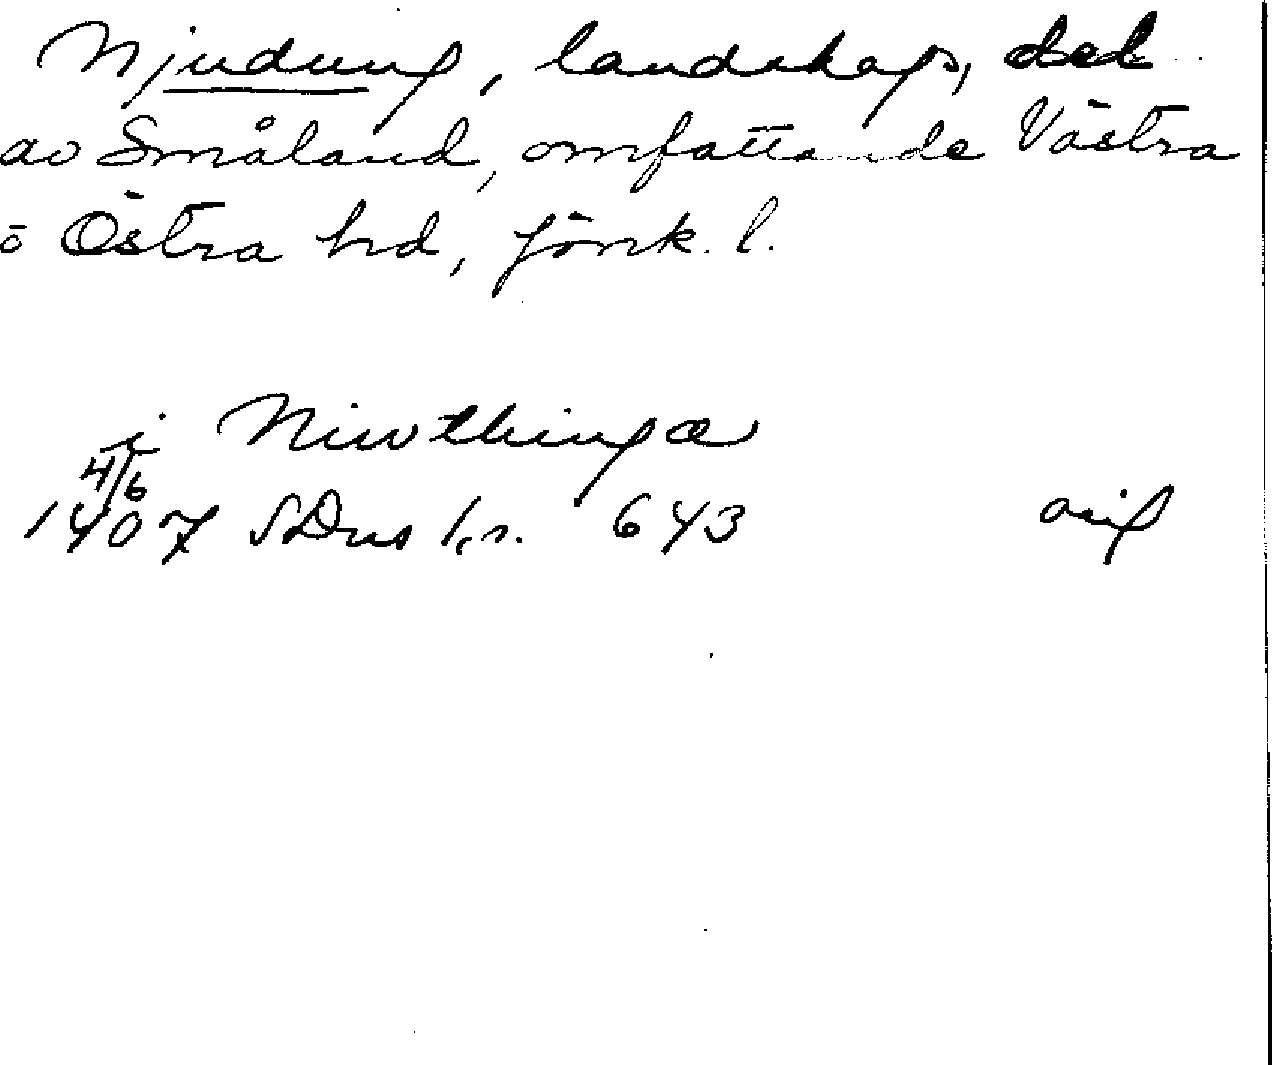 Njudung, landskap, del
av Småland, omfattande Västra
o Östra hd, Jönk. l.
i Niwthinga
4/6
1407 SDns 1, s. 643 orig